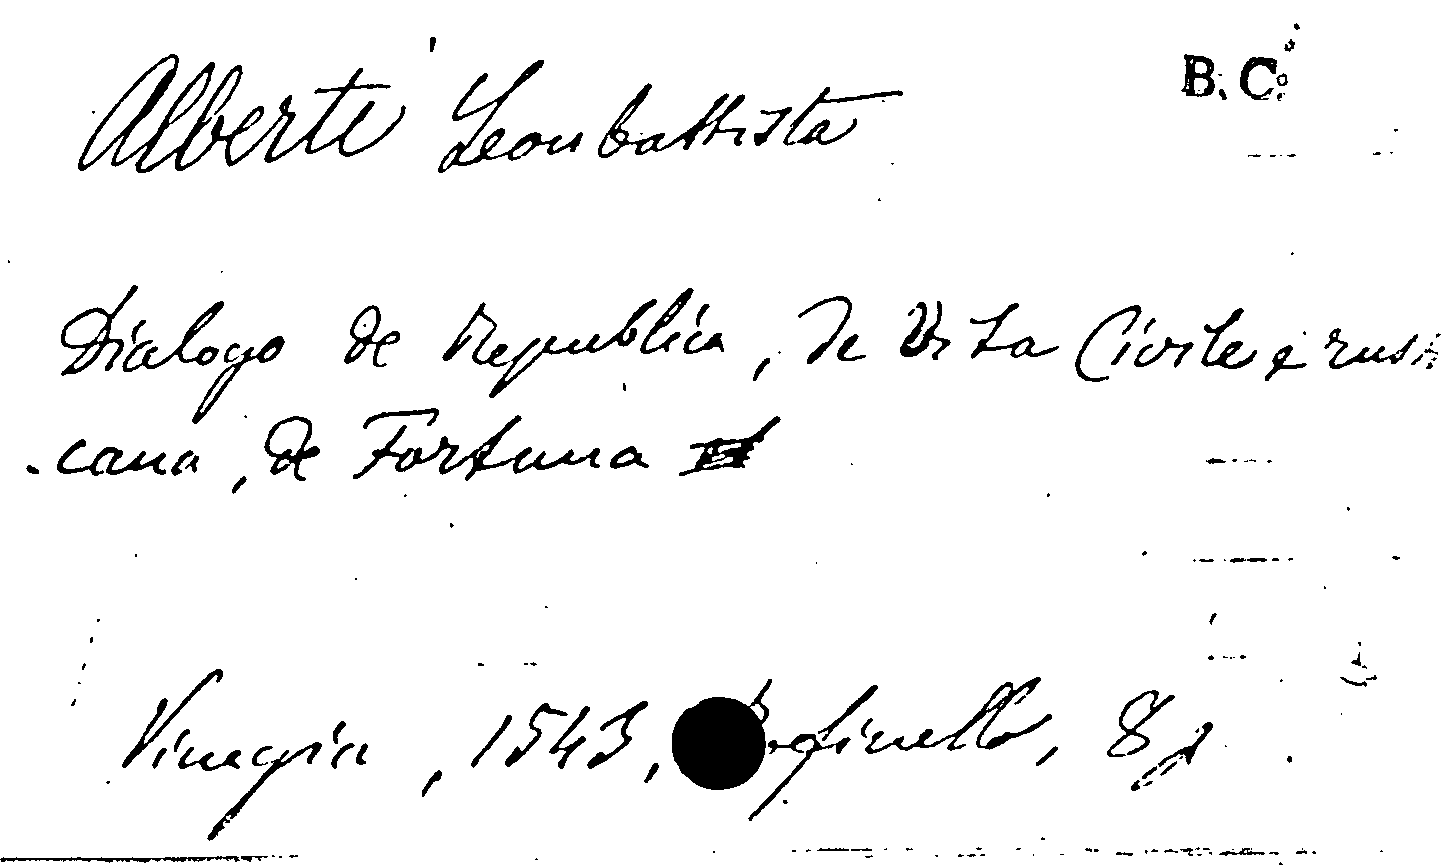 B. C.
Alberti Leon Battista
Dialogo de Republica, de Vita Civile e rusti
cana, de Fortuna
Vinegia, 1543, 8º